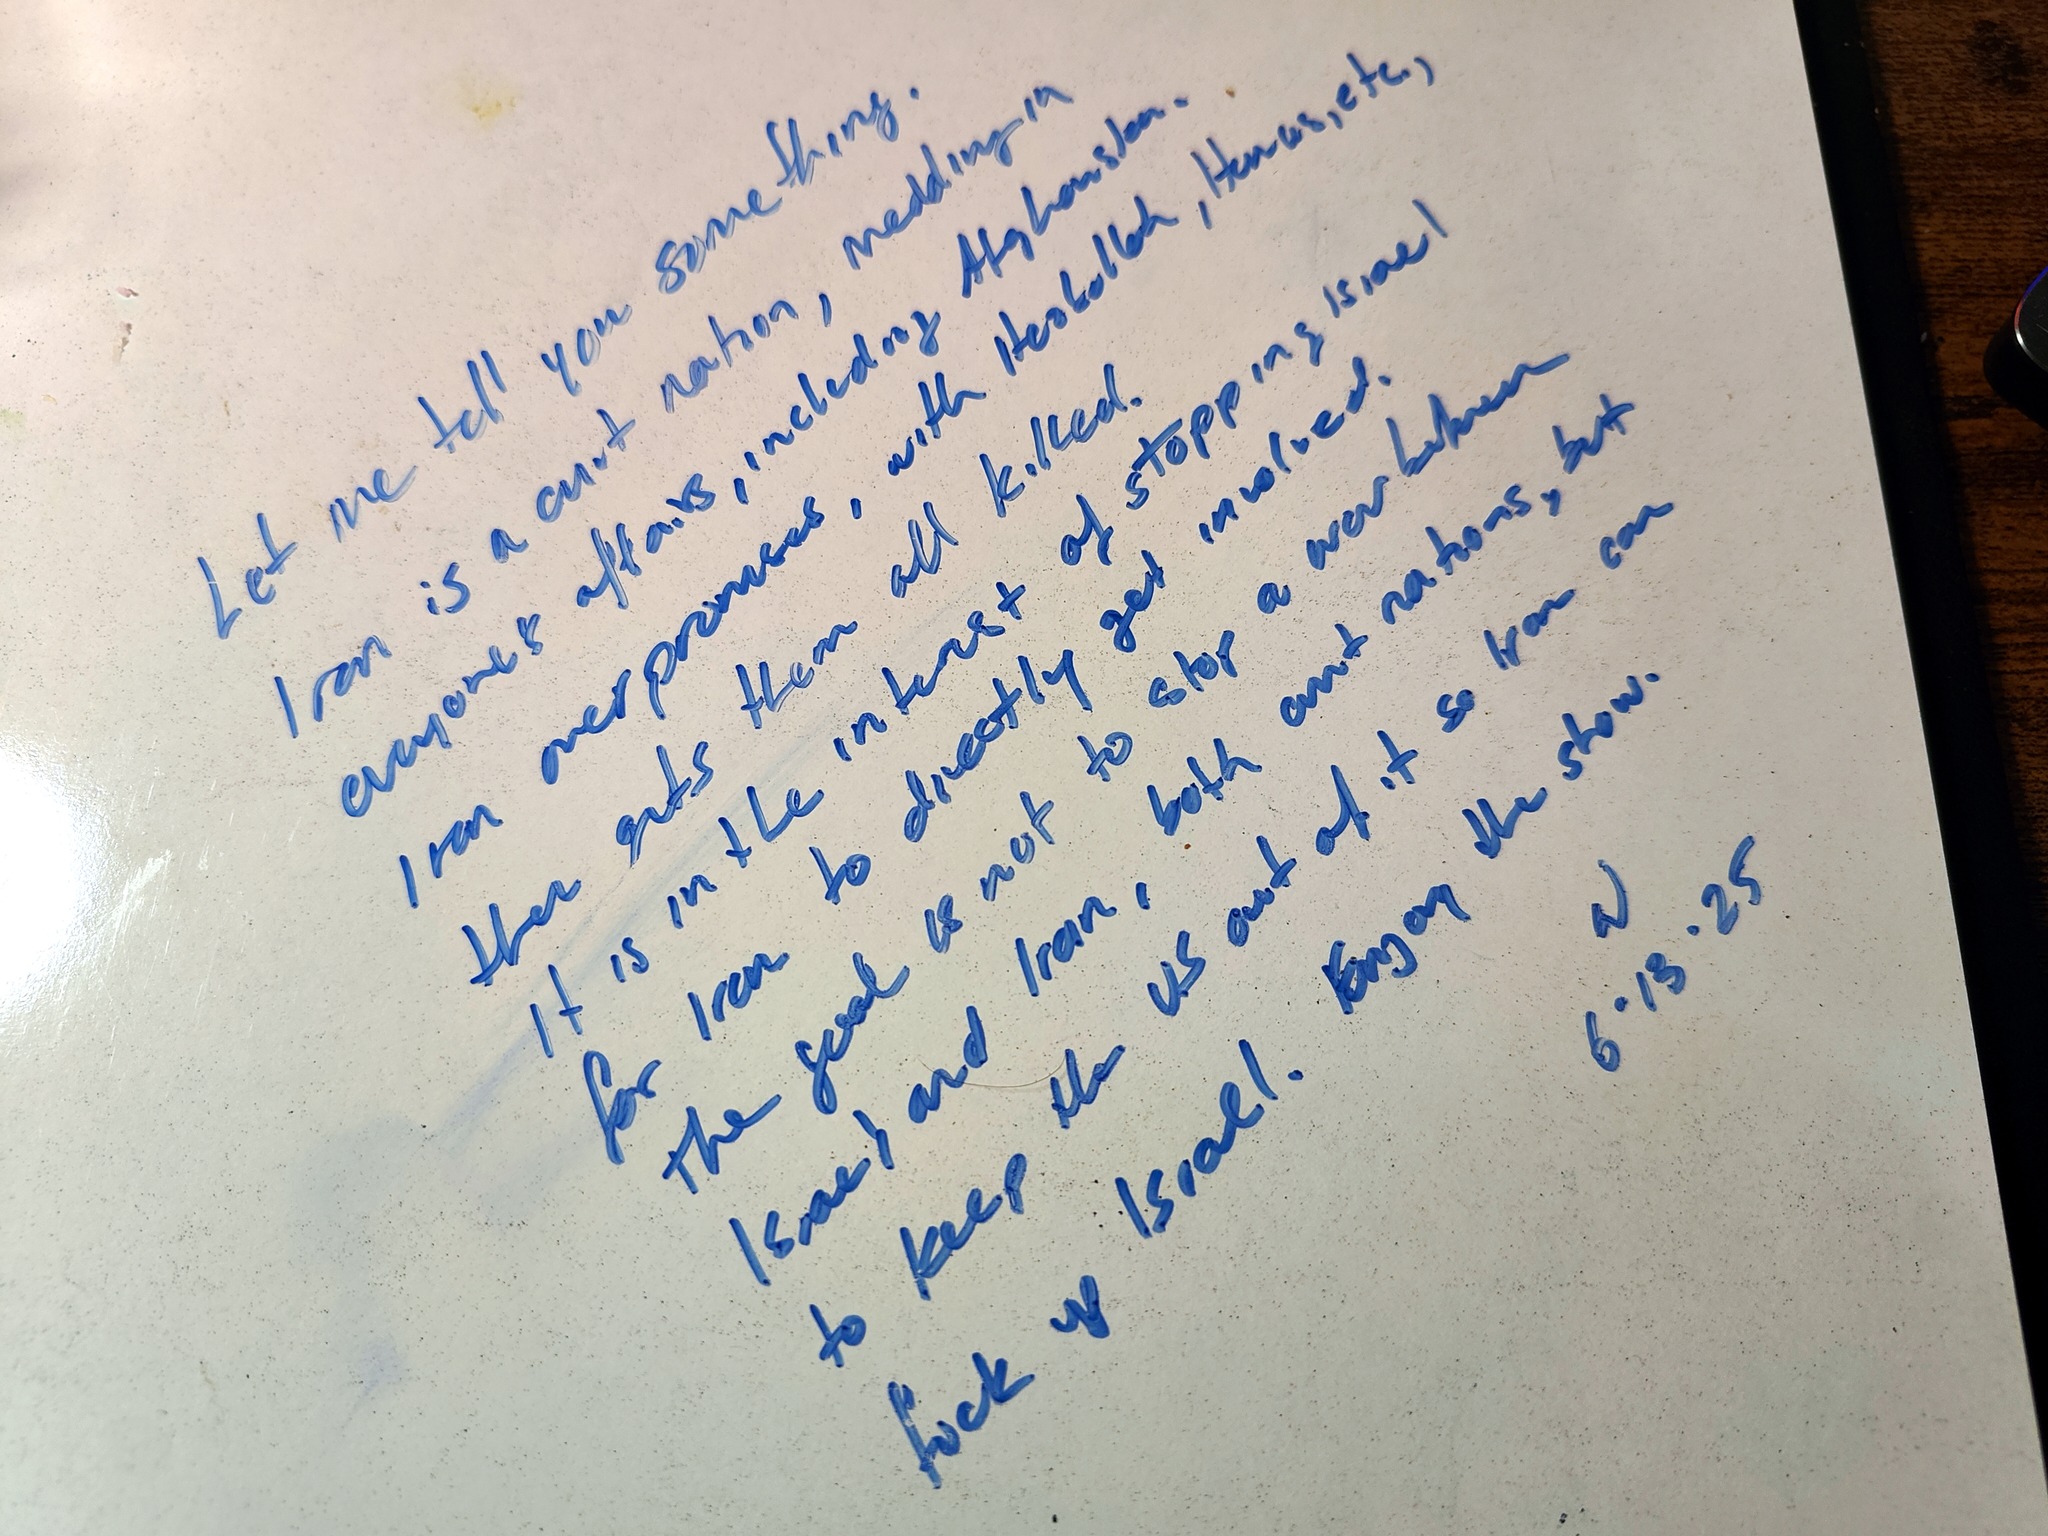 Let me tell you something.
Iran is a cunt nation, meddling in
everyone's affairs, including Afghanistan.
Iran overpromises, with Hezbollah, Hamas, etc.,
then gets them all killed.
It is in the interest of stopping Israel
for Iran to directly get involved.
The goal is not to stop a war between
Israel and Iran, both cunt nations, but
to keep the US out of it so Iran can
fuck up Israel. Enjoy the show.
N
6.13.25